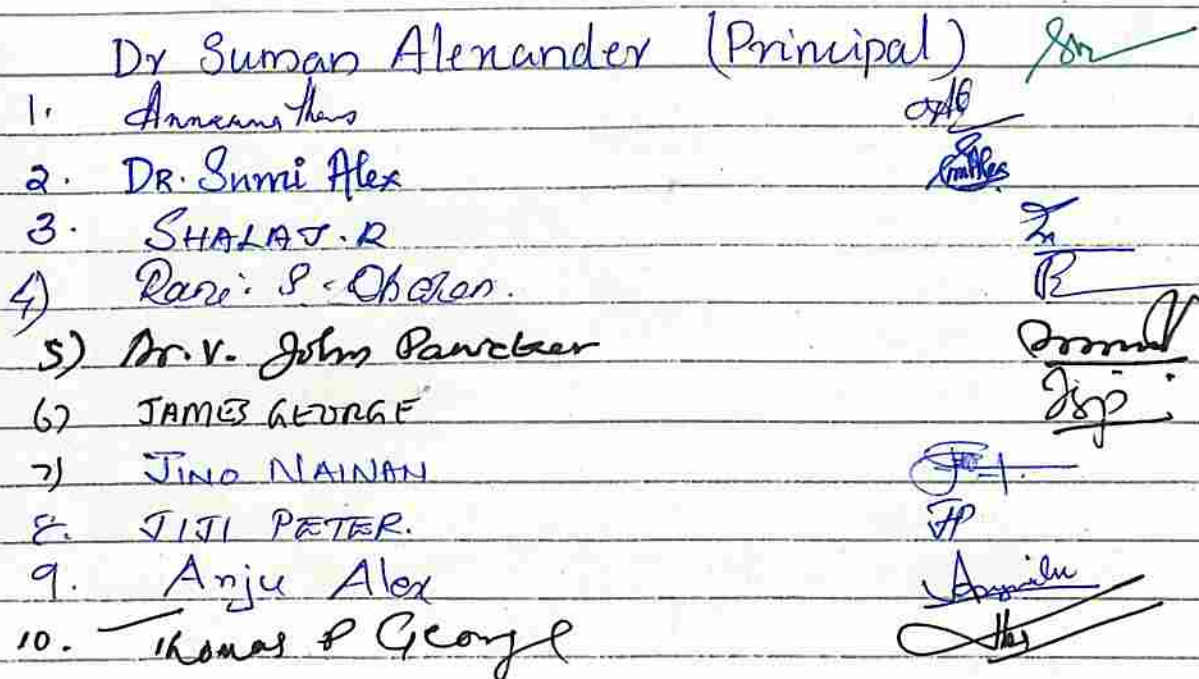 Dr Suman Alexander (Principal)
1. Annamma
2. DR. Sumi Alex
3. SHALAJ.R
4) Rani. S. Oharen.
5) Dr. V. John Panicker
6) JAMES GEORGE
7) JINO NAINAN
8. JIJI PETER. JP
9. Anju Alex
10. Thomas P George